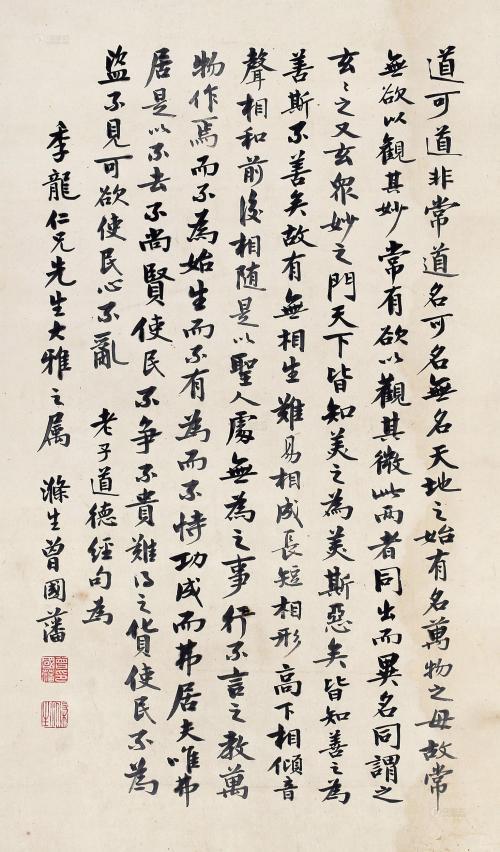 道可道非常道名可名無名天地之始有名萬物之母故常
無欲以觀其妙常有欲以觀其微此兩者同出而異名同謂之
玄〻之又玄眾妙之門天下皆知美之為美斯惡矣皆知善之為
善斯不善矣故有無相生難易相成長短相形高下相傾音
聲相和前後相隨是以聖人處無為之事行不言之教萬
物作焉而不為始生而不有為而不恃功成而弗居夫唯弗
居是以不去不尚賢使民不爭不貴難得之貨使民不為
盜不見可欲使民心不亂 老子道德經句為
季龍仁兄先生大雅之属 滌生曾國藩